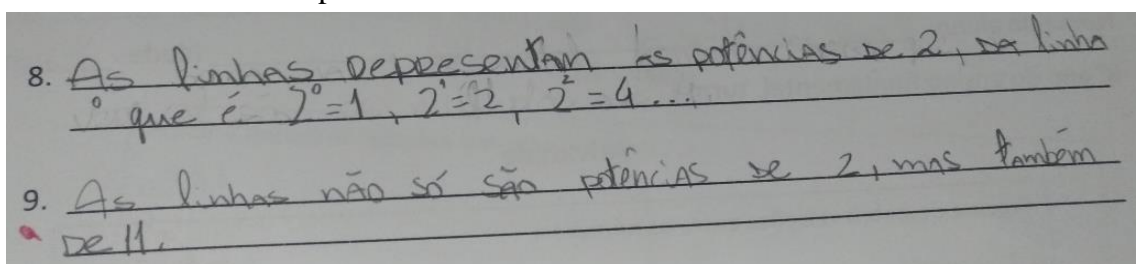 8. As linhas representam as potências de 2, da linha
0 que é 2⁰=1, 2¹=2, 2²=4...
9. As linhas não só são potências de 2, mas também
a De 11.